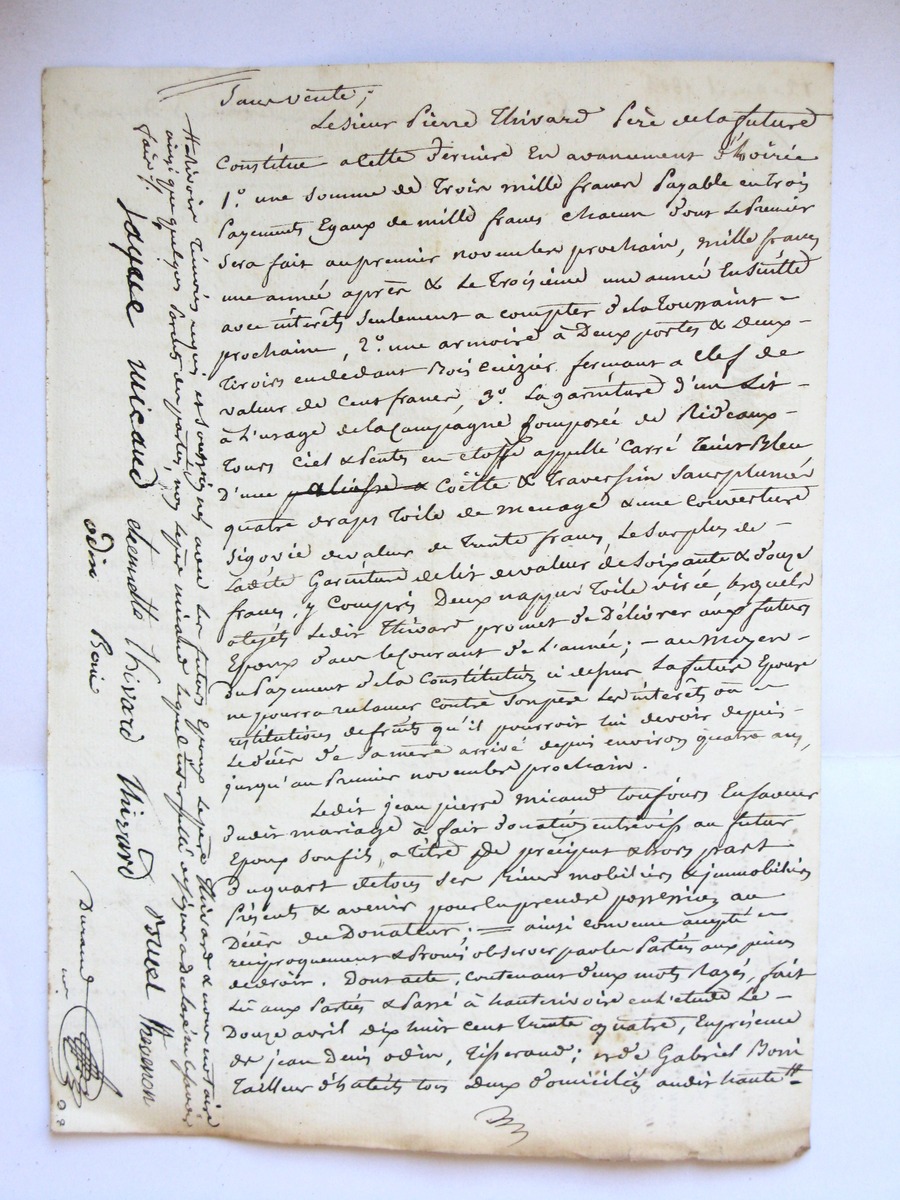 Sauvente;
Le Sieur Pierre Thivard Père de la future
Constitue a cette derniere En avancement d'hoirée
1°. une somme de Trois mille francs Payable en trois
Payements Egaux de mille francs chacun dont Le Premier
Sera fait au premier novembre prochain, mille francs
une année après & Le Troisieme une année Ensuitte
avec intérêts Seulement a compter de la toussaint –
prochaine, 2°. une armoire à Deux portes & deux –
tiroirs en dedant Bois Cuizier fermant a clef de
valeur de Cent francs, 3°. La garniture d'un Lit –
à L'usage de la Campagne Composée de Rideaux –
Tours Ciel & Pentes en étoffe appellé Carré Teint Bleu
D'une paliasse & Coëtte & Traversin Sans plumes
quatre draps Toile de menage & une Couverture
Sigovie de valeur de Trente francs, Le Surplus de –
Ladite Garniture de lit de valeur de Soixante & douze
francs, y Compris Deux nappes Toile virée lesquels
objets Ledit Thivard promet de Délivrer aux futurs
Epoux dans le courant de L'année; – au moyen –
du Payement de la Constitution ci dessus La future Epouse
ne pourra reclamer Contre Son père Les intérêts ou –
restitutions de fruits qu'il pourroit lui devoir depuis –
Le décès de Sa mère arrivé depuis environ quatre ans,
jusqu'au Premier novembre prochain.
Ledit jean pierre micaud toujours En faveur
dudit mariage à fait donation entrevifs au futur
Epoux Son fils, a titre de préciput & hors part
Du quart de tous Ses Biens mobiliers & immobiliers
Présents & avenir pour En prendre possession au
Décès du Donateur. = ainsi convenu accepté –
reciproquement & Promis observer par les Parties aux peines
de droit. Dont acte, Contenant deux mots Rayés, fait
Lu aux Parties & Passé à hauterivoire en L'etude Le –
Douze avril dix huit cent Trente quatre, En présence
de jean Denis odin, Tisserand; & de Gabriel Boni
Tailleur d'habits tous deux domiciliés audit haute tt
Rivoir témoins requis et soussignés avec Les futurs Epoux Le père Thivard & nous notaire
ainsi que quelques Parents des parties, non Le père micaud Lequel de ce enquis a déclaré ne savoir
faire.
Jaque micaud claudette thivard Thivard Bruel Thevenon
odin Boni
Durand
nre